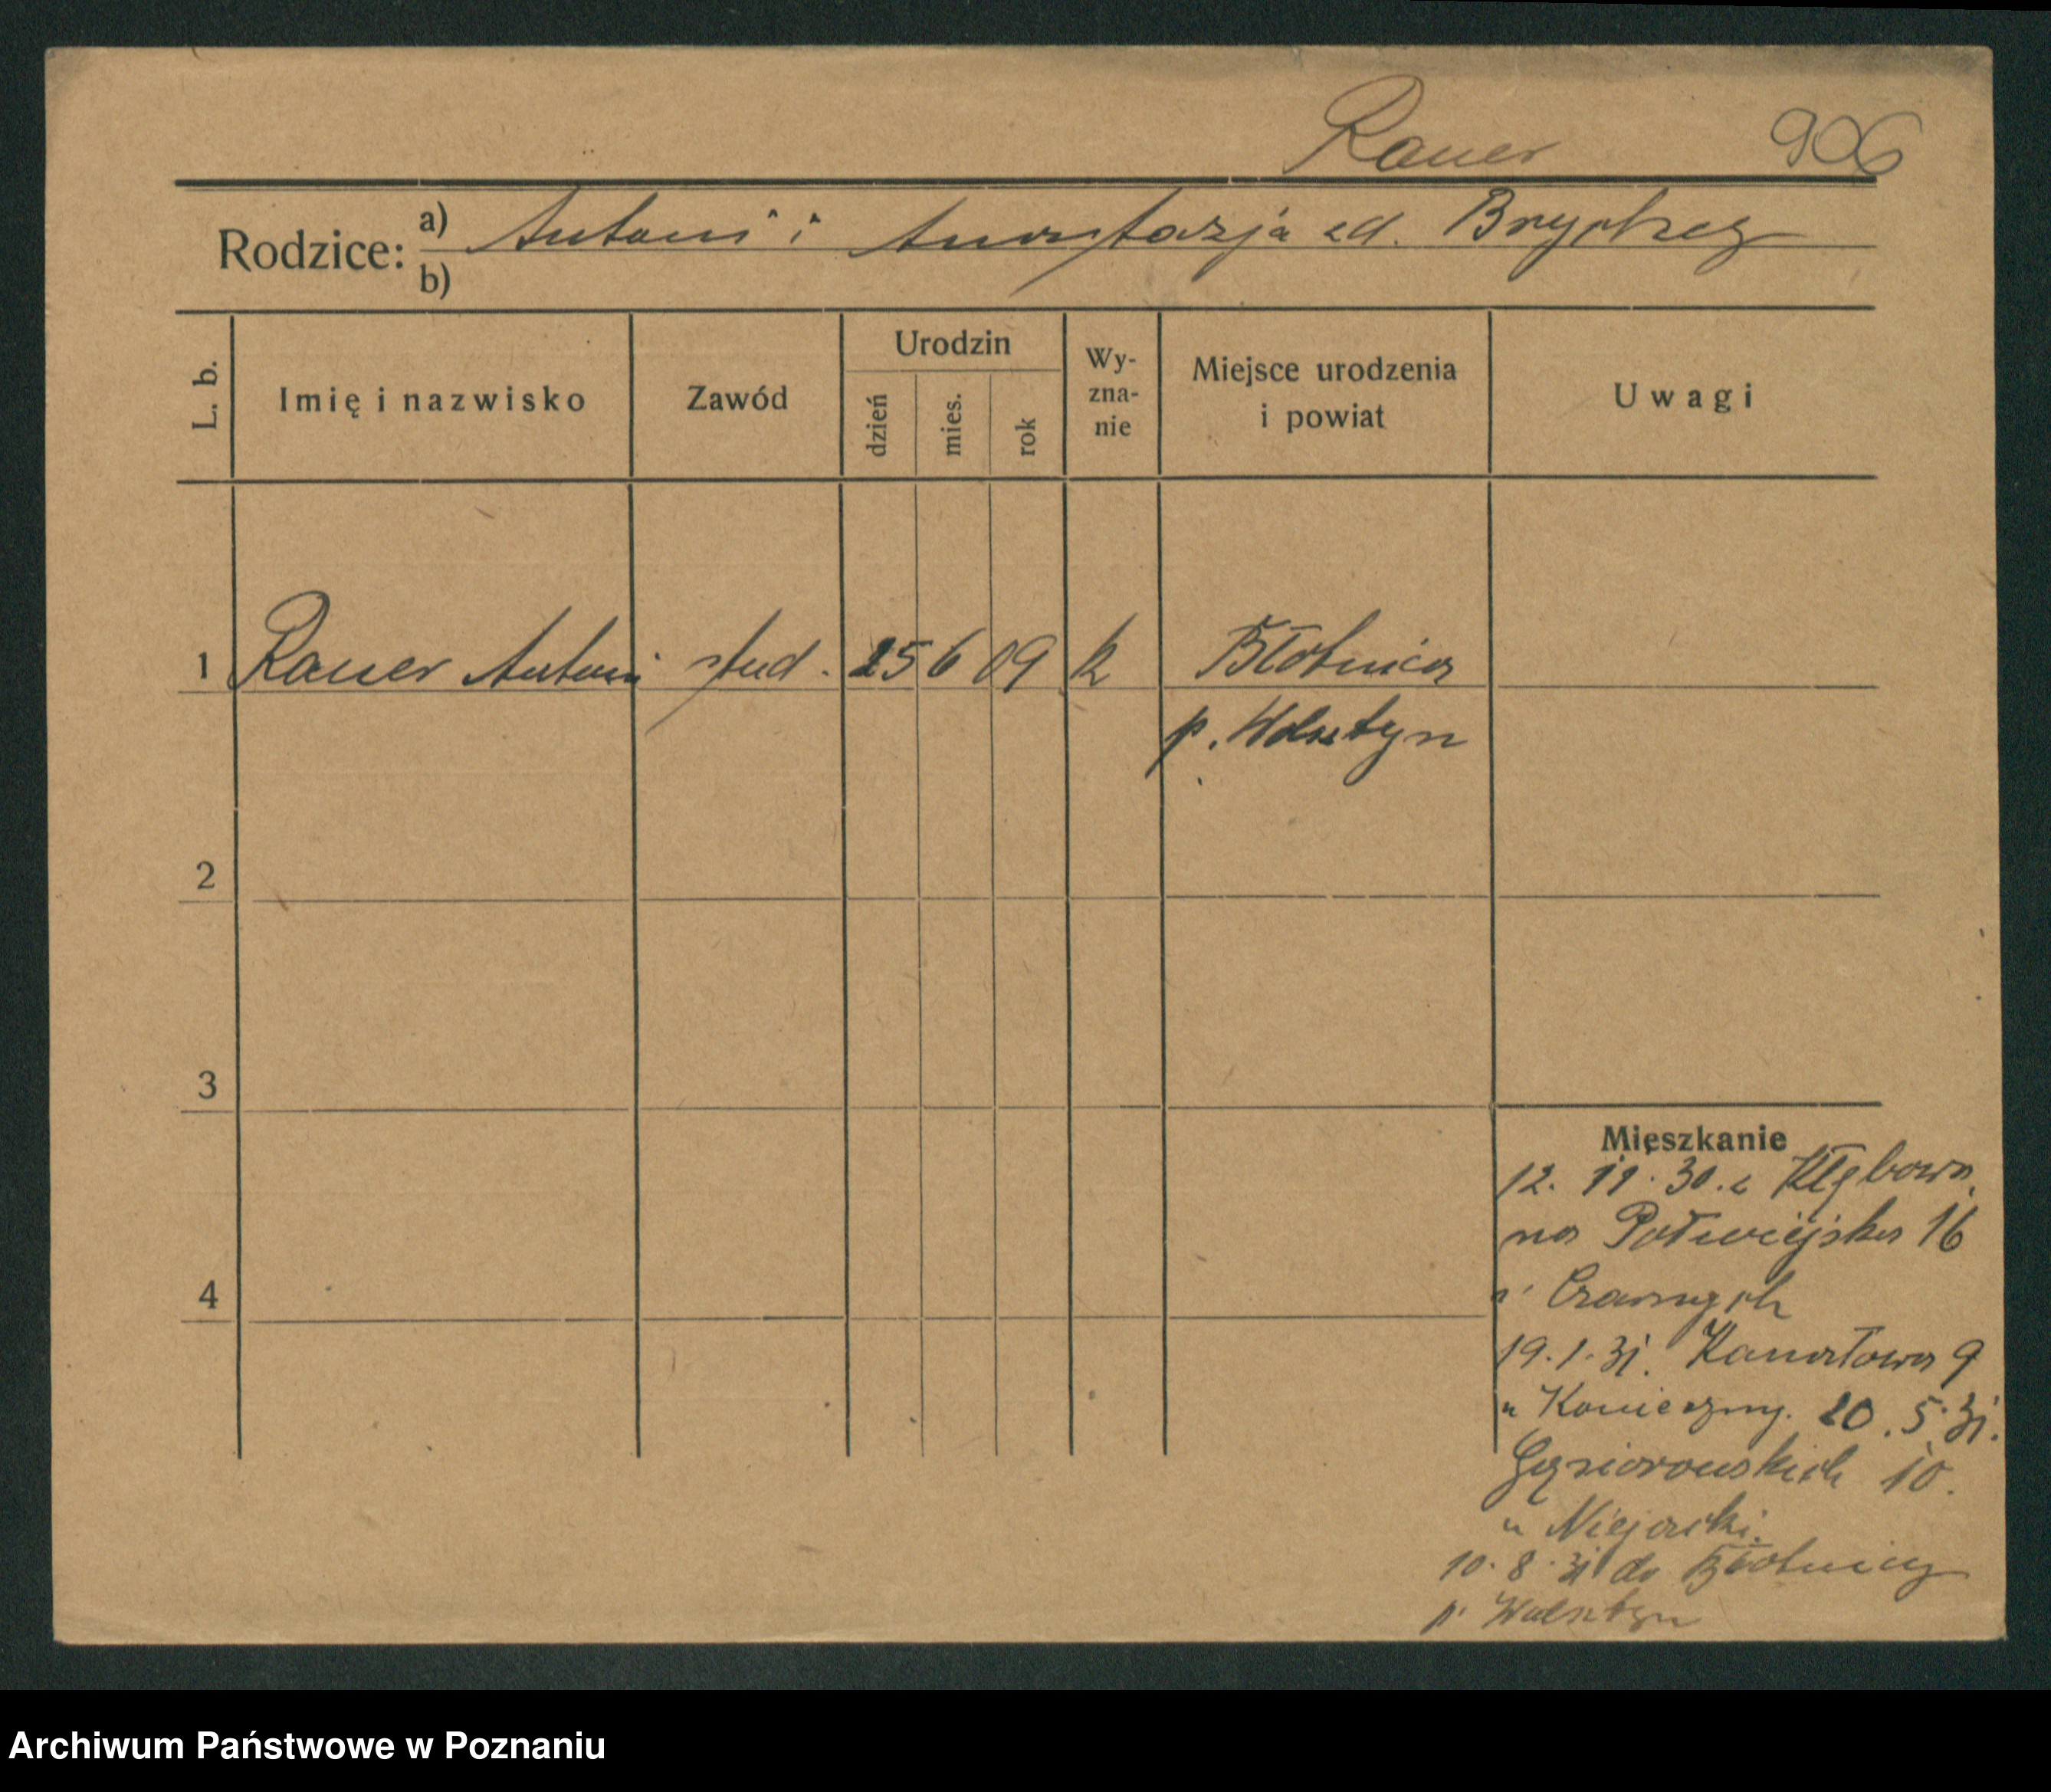 Rauer 906
Rodzice: a) Antoni i Anastazja zd. Brychcy
b)
L. b. Imię i nazwisko Zawód Urodzin dzień mies. rok Wy-zna-nie Miejsce urodzenia i powiat Uwagi
1 Rauer Antoni stud. 25 6 09 k Błotnica
p. Wolsztyn
2
3
4
Mieszkanie
12. 11. 30. z Kłębowa
na Półwiejska 16
u Czarnych
19. 1. 31. Kanałowa 9
u Konieczny. 20. 5. 31.
Gąsiorowskich 10.
u
10. 8. 31 do Błotnicy
p. Wolsztyn
Archiwum Państwowe w Poznaniu